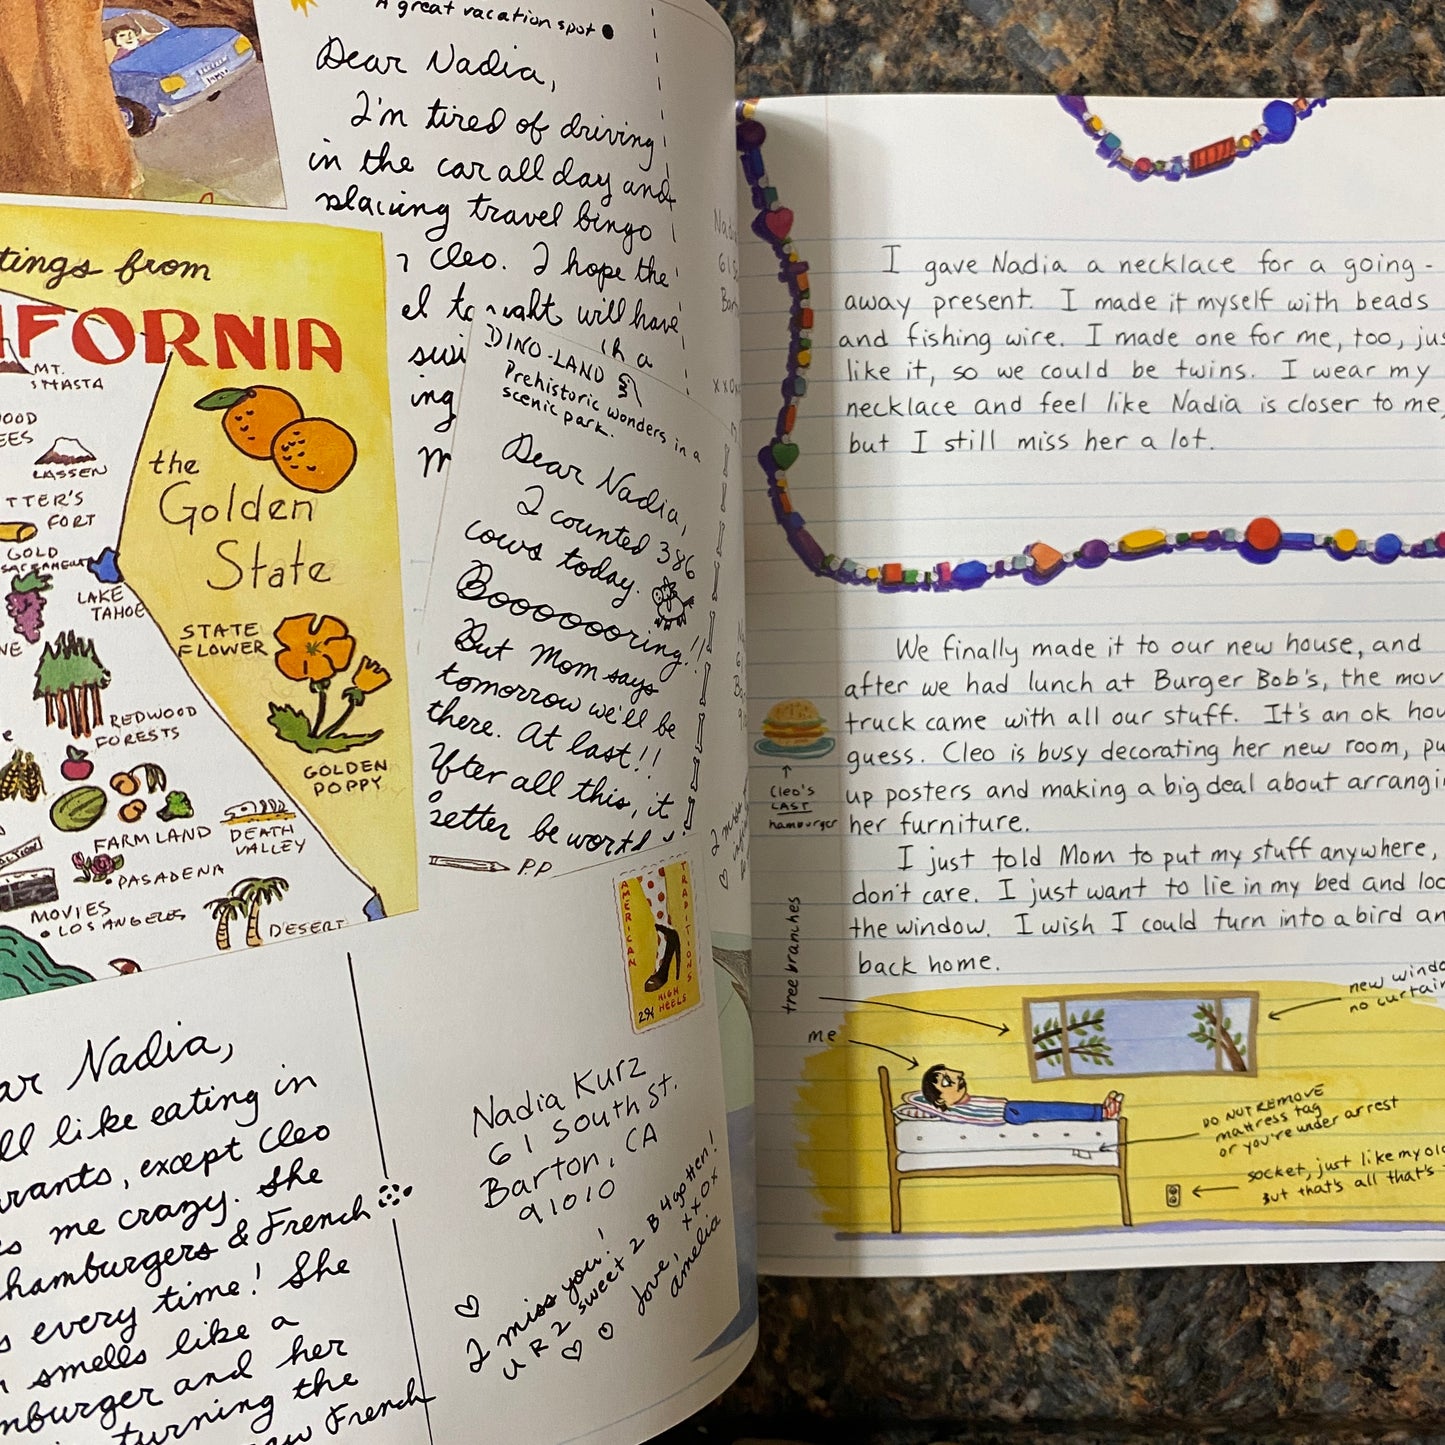 A great vacation spot
Dear Nadia,
I'm tired of driving
in the car all day and
playing travel bingo
Cleo. I hope the
will have
a
ing
DINO-LAND
Prehistoric wonders in a
scenic park.
Dear Nadia,
I counted 386
cows today.
Booooooring!!
But Mom says
tomorrow we'll be
there. At last!!
After all this, it
better be worth
P.P
from
FORNIA
MT.
SHASTA
LASSEN
FORT
GOLD
LAKE
TAHOE
the
Golden
State
STATE
FLOWER
GOLDEN
POPPY
REDWOOD
FORESTS
FARMLAND
DEATH
VALLEY
PASADENA
MOVIES
LOS ANGELES
DESERT
AMERICAN
TRADITIONS
HIGH
HEELS
29¢
Nadia Kurz
61 South St.
Barton, CA
91010
I miss you!
U R 2 sweet 2 B 4gotten!
love,
xxox
amelia
Nadia,
like eating in
except Cleo
me crazy. She
hamburgers & French
every time! She
smells like a
and her
turning the
French
I gave Nadia a necklace for a going-
away present. I made it myself with beads
and fishing wire. I made one for me, too,
like it, so we could be twins. I wear my
necklace and feel like Nadia is closer to me,
but I still miss her a lot.
We finally made it to our new house, and
after we had lunch at Burger Bob's, the
truck came with all our stuff. It's an ok
guess. Cleo is busy decorating her new room,
up posters and making a big deal about
her furniture.
I just told Mom to put my stuff anywhere,
don't care. I just want to lie in my bed and
the window. I wish I could turn into a bird
back home.
Cleo's
LAST
hamburger
tree branches
me
new
no
DO NOT REMOVE
mattress tag
or you're under arrest
socket, just like my old
But that's all that's